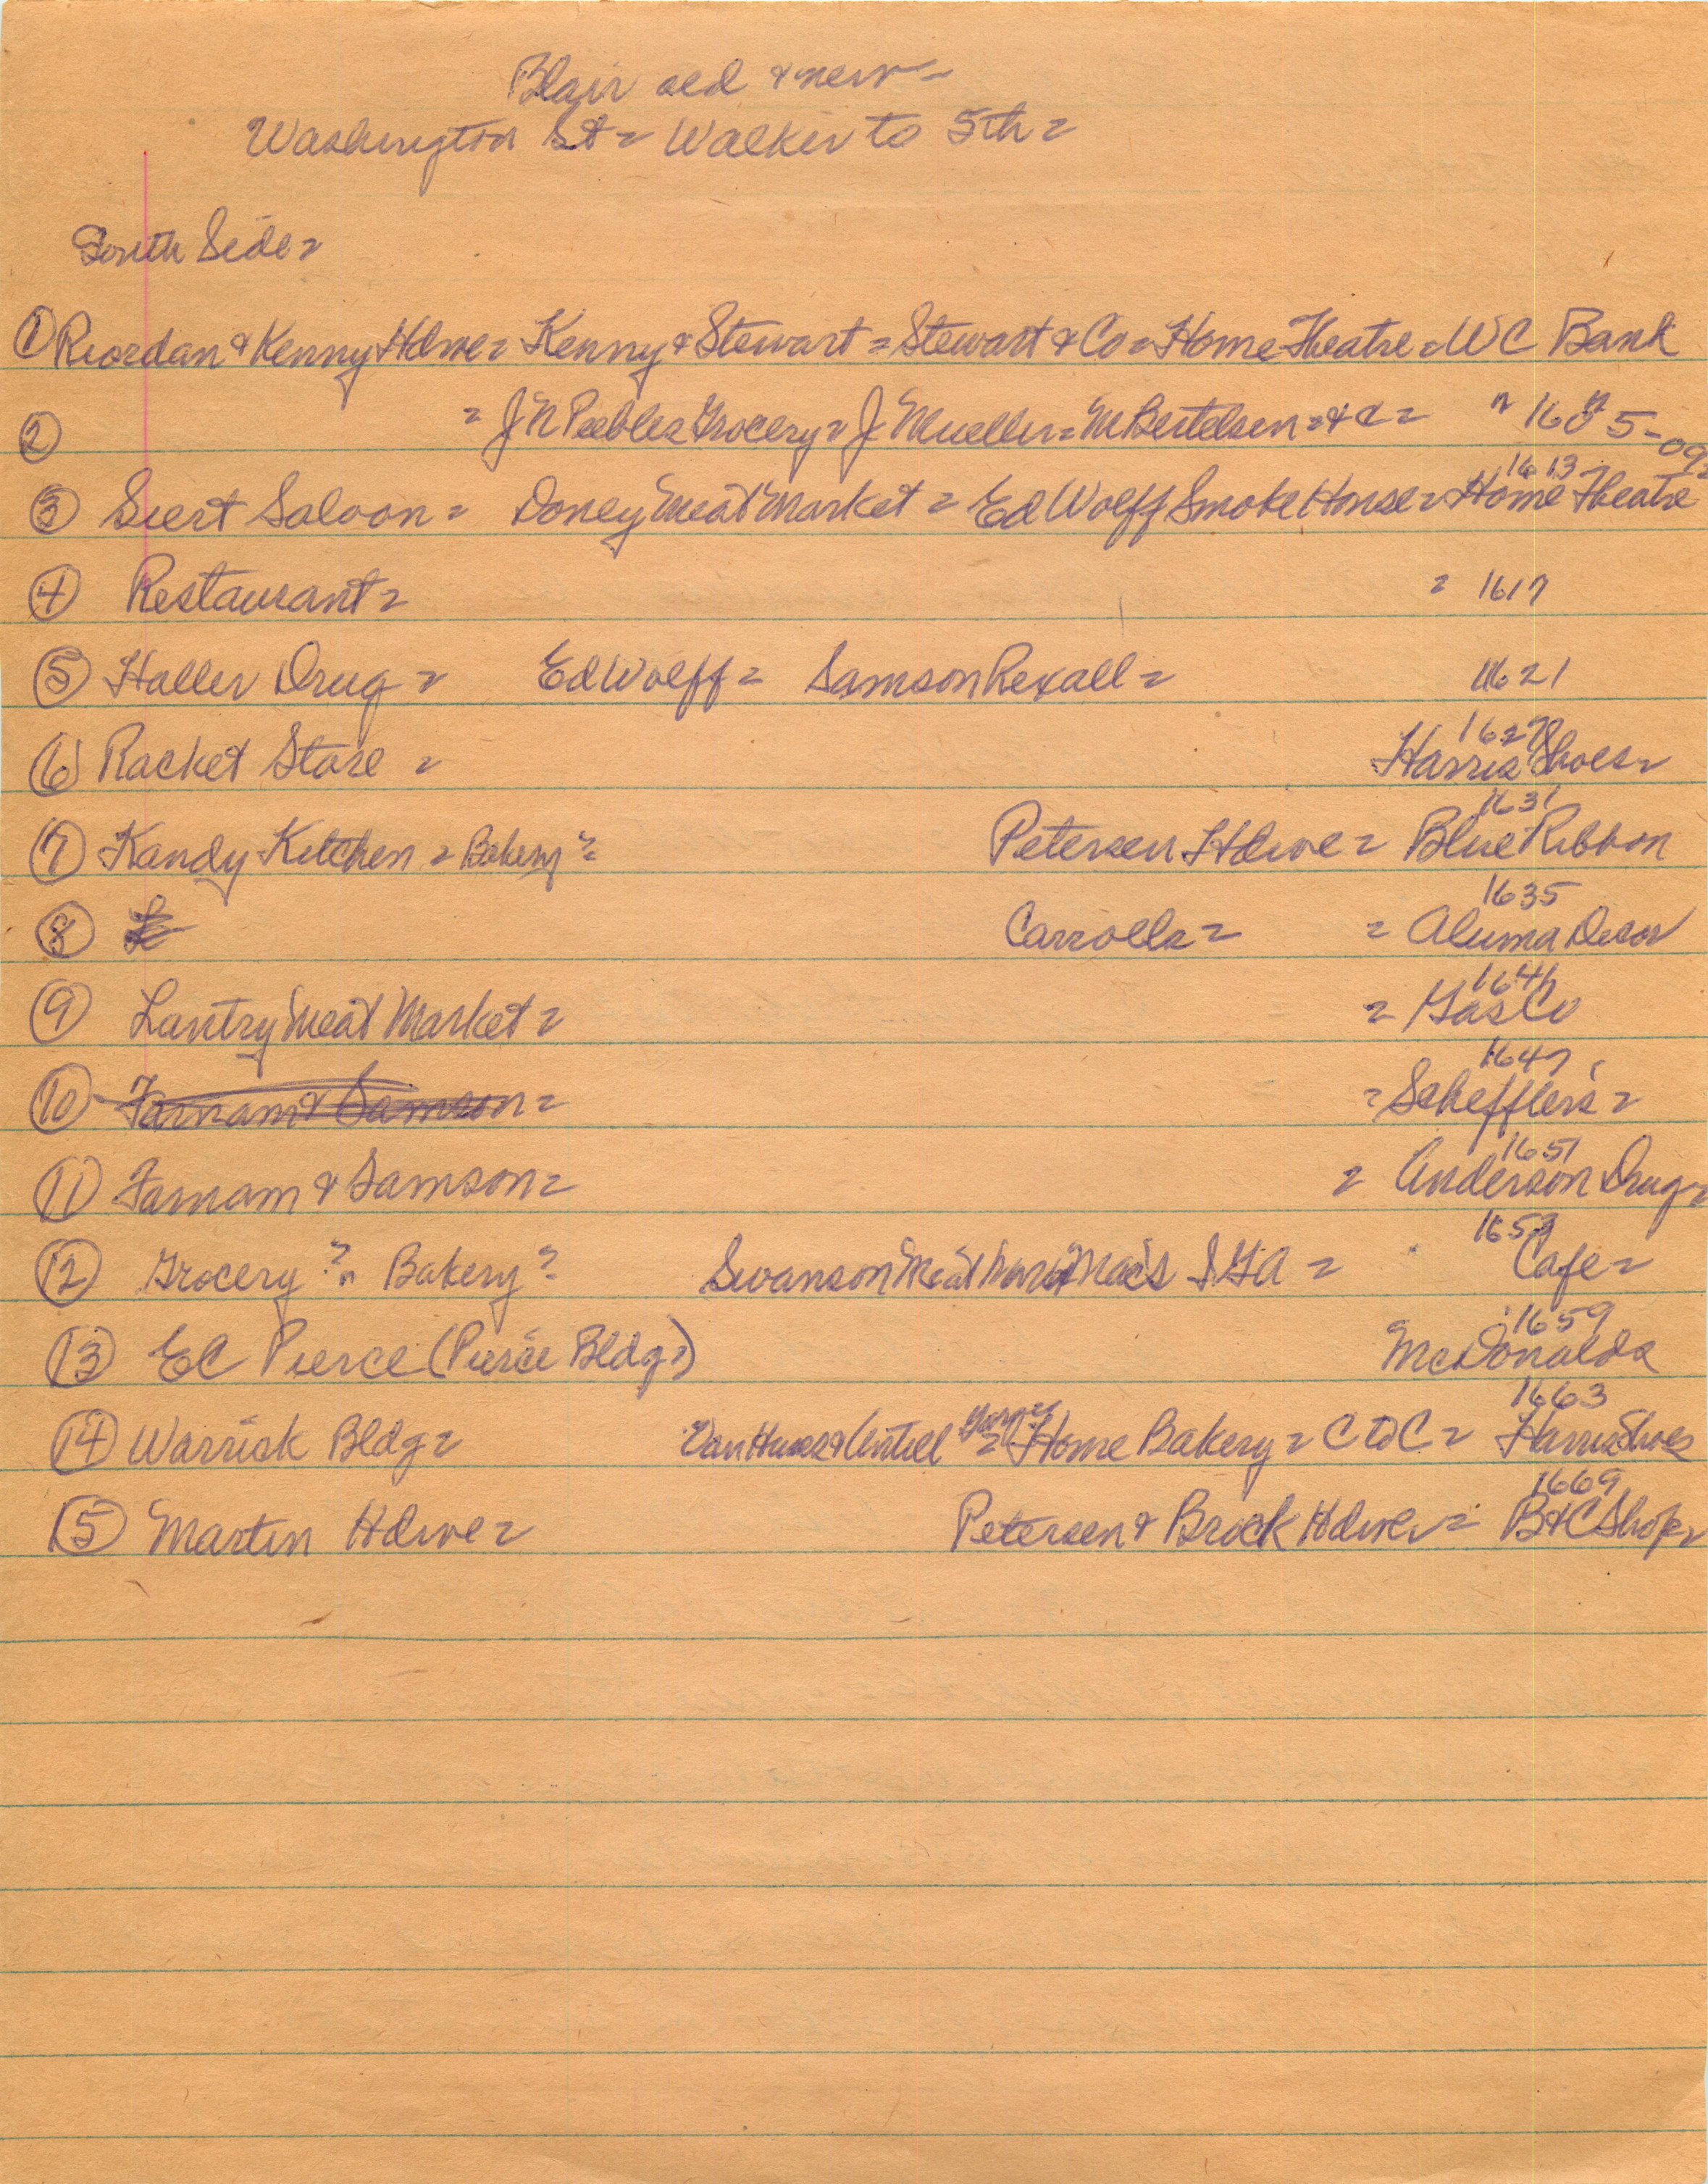 Blair old & new =
Washington St = Walker to 5th =
South Side =
① Riordan & Kenny Hdwe = Kenny & Stewart = Stewart & Co = Home Theatre = WC Bank
② = J N Peebles Grocery = J Mueller = M Bertelsen = & C = " 1605-09
1613
③ Siert Saloon = Doney Meat Market = Ed Wolff Smoke House = Home Theatre
④ Restaurant = = 1617
⑤ Haller Drug = Ed Wolff = Samson Rexall = 1621
1627
⑥ Racket Store = Harris Shoes =
1631
⑦ Kandy Kitchen = Bakery? = Petersen Hdwe = Blue Ribbon
1635
⑧ Carrolls = = Aluma Decor
⑨ Lantry Meat Market = = Gas Co
1647
⑩ Farnam & Samson = = Scheffler's =
1651
⑪ Farnam & Samson = = Anderson Drug =
⑫ Grocery? = Bakery? = Swanson Meat Market Mac's IGA = Cafe =
1659
⑬ EC Pierce (Pierce Bldg =) McDonalds
1663
⑭ Warrick Bldg = = Home Bakery = C to C = Harris Shoes
1669
⑮ Martin Hdwe = Petersen & Brock Hdwe = = B & C Shop =